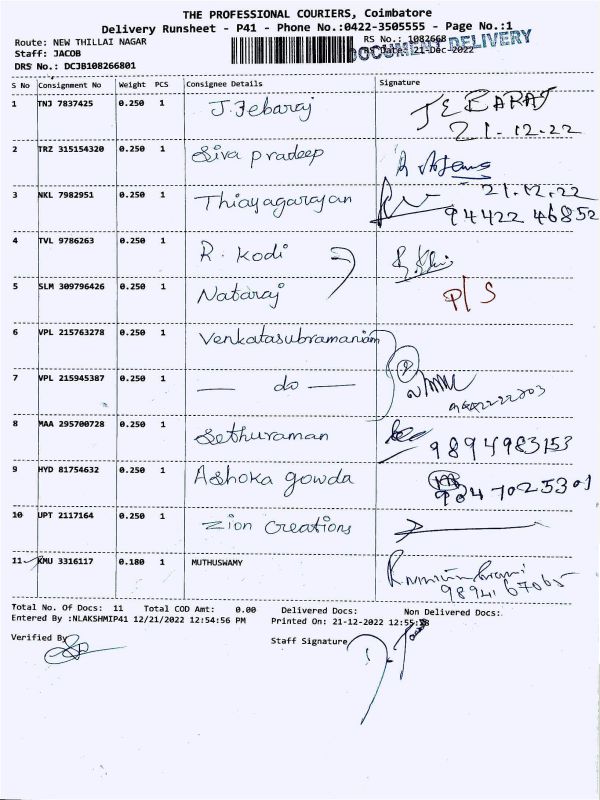 THE PROFESSIONAL COURIERS, Coimbatore
Delivery Runsheet - P41 - Phone No.:0422-3505555 - Page No.:1
Route: NEW THILLAI NAGAR
RS No.: 1082668
DOCUMENT DELIVERY
Staff: JACOB
RS Date: 21-Dec-2022
DRS No.: DCJB108266801
S No Consignment No Weight PCS Consignee Details Signature
1 TNJ 7837425 0.250 1 J. Febaraj JEBARAJ
21.12.22
2 TRZ 315154320 0.250 1 Siva pradeep
21.12.22
3 NKL 7982951 0.250 1 Thiayagarayan
94422 46852
4 TVL 9786263 0.250 1 R. Kodi
5 SLM 309796426 0.250 1 Nataraj P/S
6 VPL 215763278 0.250 1 Venkatasubramaniam
7 VPL 215945387 0.250 1 — do — 2
8 MAA 295700728 0.250 1 Sethuraman 9894983153
9 HYD 81754632 0.250 1 Ashoka gowda
10 UPT 2117164 0.250 1 Zion Creations
11 KMU 3316117 0.180 1 MUTHUSWAMY
Total No. Of Docs: 11 Total COD Amt: 0.00 Delivered Docs: Non Delivered Docs:
Entered By :NLAKSHMIP41 12/21/2022 12:54:56 PM Printed On: 21-12-2022
Verified By
Staff Signature